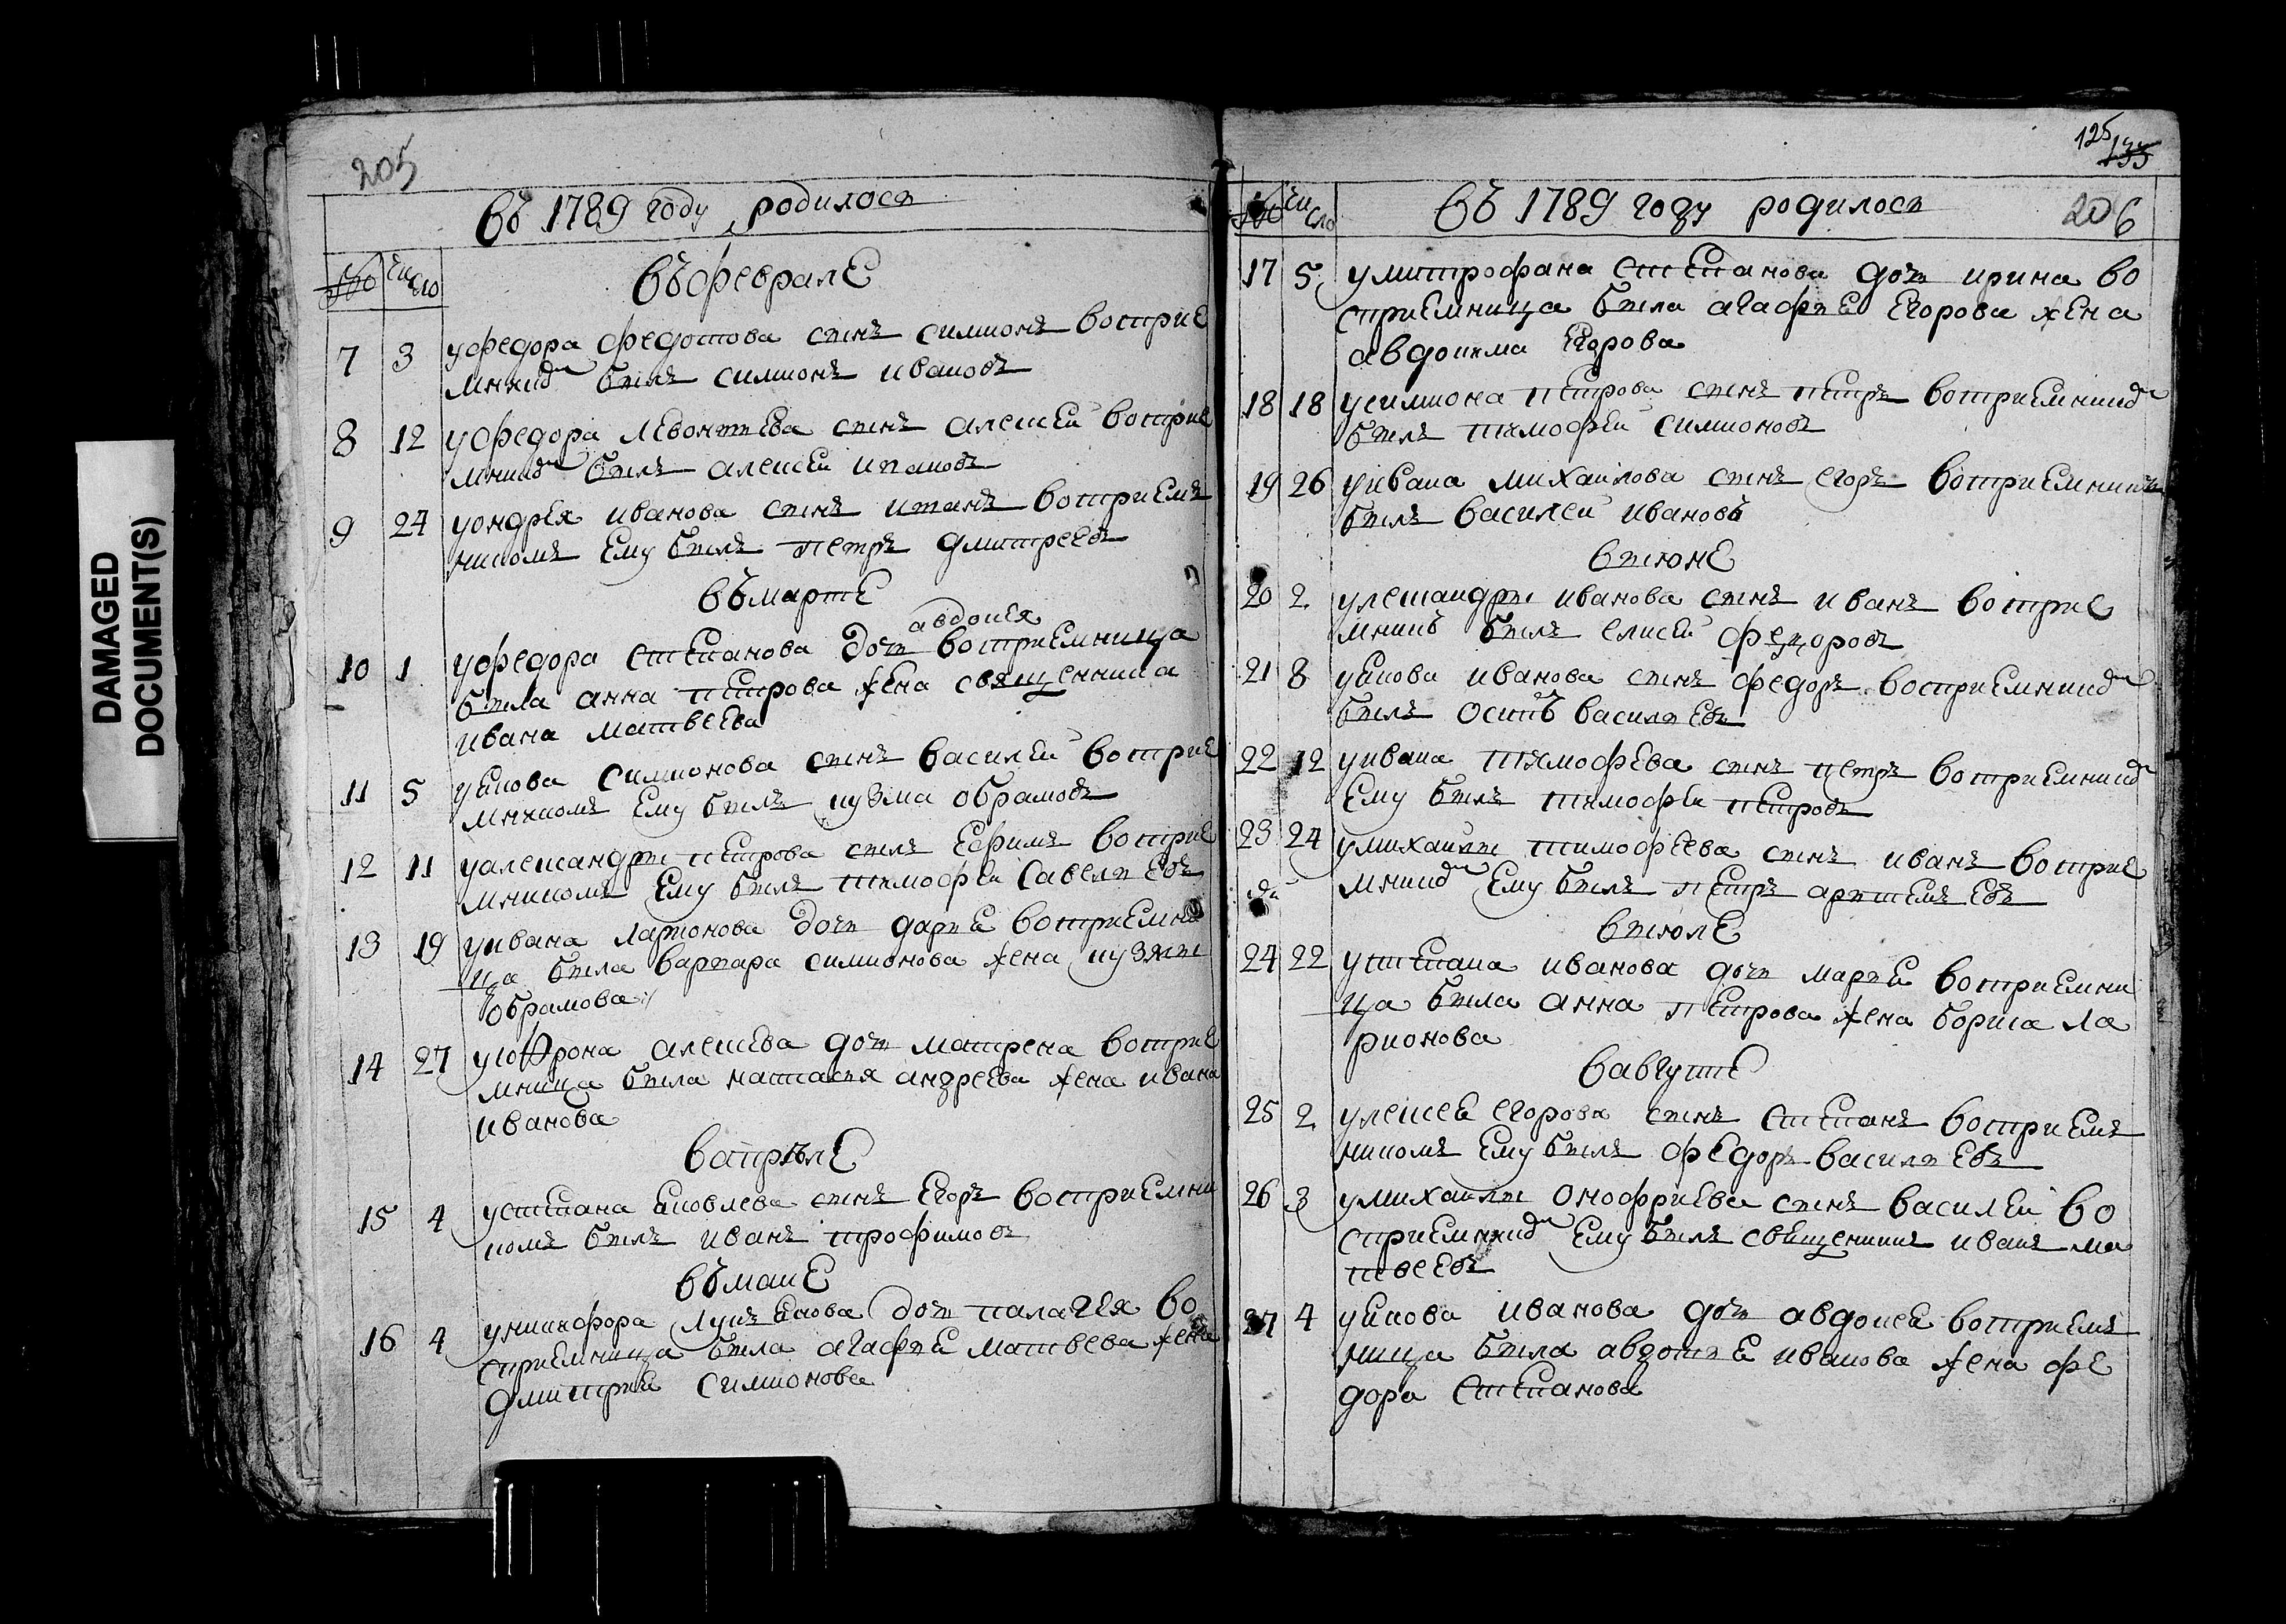 DAMAGED
DOCUMENT(S)
205
въ 1789 году родилось
№ число
въ феврале
7 3 у федора федотова сынъ симионъ восприе
мникъ былъ симионъ ивановъ
8 12 у федора левонтьева сынъ алексей восприе
мникъ былъ алексей
9 24 у ондрея иванова сынъ восприем
никомъ ему былъ петръ дмитреевъ
въ марте
авдокея
10 1 у федора степанова дочь восприемница
была анна петрова жена священника
ивана матвеева
11 5 у екова симионова сынъ василеи восприе
мникомъ ему былъ кузма обрамовъ
12 11 у александры петрова сынъ ефимъ восприе
мникомъ ему былъ тимофеи савельевъ
13 19 у ивана ларионова дочь дарье восприемни
ца была варвара симионова жена кузмы
обрамова
14 27 у софрона алексева дочь матрена восприе
мница была настасья андреева жена ивана
иванова
в апрѣле
15 4 у степана ековлева сынъ егоръ восприемни
комъ былъ иванъ трофимовъ
въ маие
16 4 у никифора дочь палагея во
сприемница была агафье матвеева жена
дмитрие симионова
125
133
№ число
въ 1789 году родилось
206
17 5 у митрофана степанова дочь ирина во
сприемница была агафье егорова жена
авдокима егорова
18 18 у симиона петрова сынъ петръ восприемникъ
былъ тимофеи симионовъ
19 26 у ивана михаилова сынъ егоръ восприемникъ
былъ василеи ивановъ
в июне
20 2 у лександры иванова сынъ иванъ восприе
мникъ былъ елисеи федоровъ
21 8 у екова иванова сынъ федоръ восприемникъ
былъ осипъ васильевъ
22 12 у ивана тимофева сынъ петръ восприемникъ
ему былъ тимофеи петровъ
23 24 у михаилы тимофеева сынъ иванъ восприе
мникъ ему былъ петръ артемъевъ
в июле
24 22 у степана иванова дочь марье восприемни
ца была анна петрова жена бориса ла
рионова
в августе
25 2 у лексея егорова сынъ степанъ восприем
никомъ ему былъ федоръ васильевъ
26 3 у михаилы онофриева сынъ василеи во
сприемникъ ему былъ священникъ иванъ ма
твеевъ
27 4 у екова иванова дочь авдокея восприем
ница была авдотье иванова жена фе
дора степанова